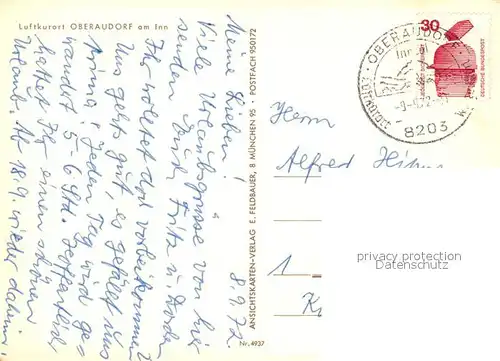 Luftkurort OBERAUDORF am Inn
8.9.72.
Meine Lieben!
Viele Urlaubsgrüsse von hier
senden Euch Fritz u.
Ihr solltet dort vorbeikommen
Uns geht's gut, es gefällt uns
prima! Jeden Tag wird ge-
wandert 5-6 Std.
Hattet Ihr einen schönen
Urlaub. Ab 18.9. wieder daheim!
Nr. 4937
ANSICHTSKARTEN-VERLAG E. FELDBAUER, 8 MÜNCHEN 95 · POSTFACH 950172
30
DEUTSCHE BUNDESPOST
OBERAUDORF
Luftkurort
8203
Herrn
Alfred
1
privacy protection
Datenschutz